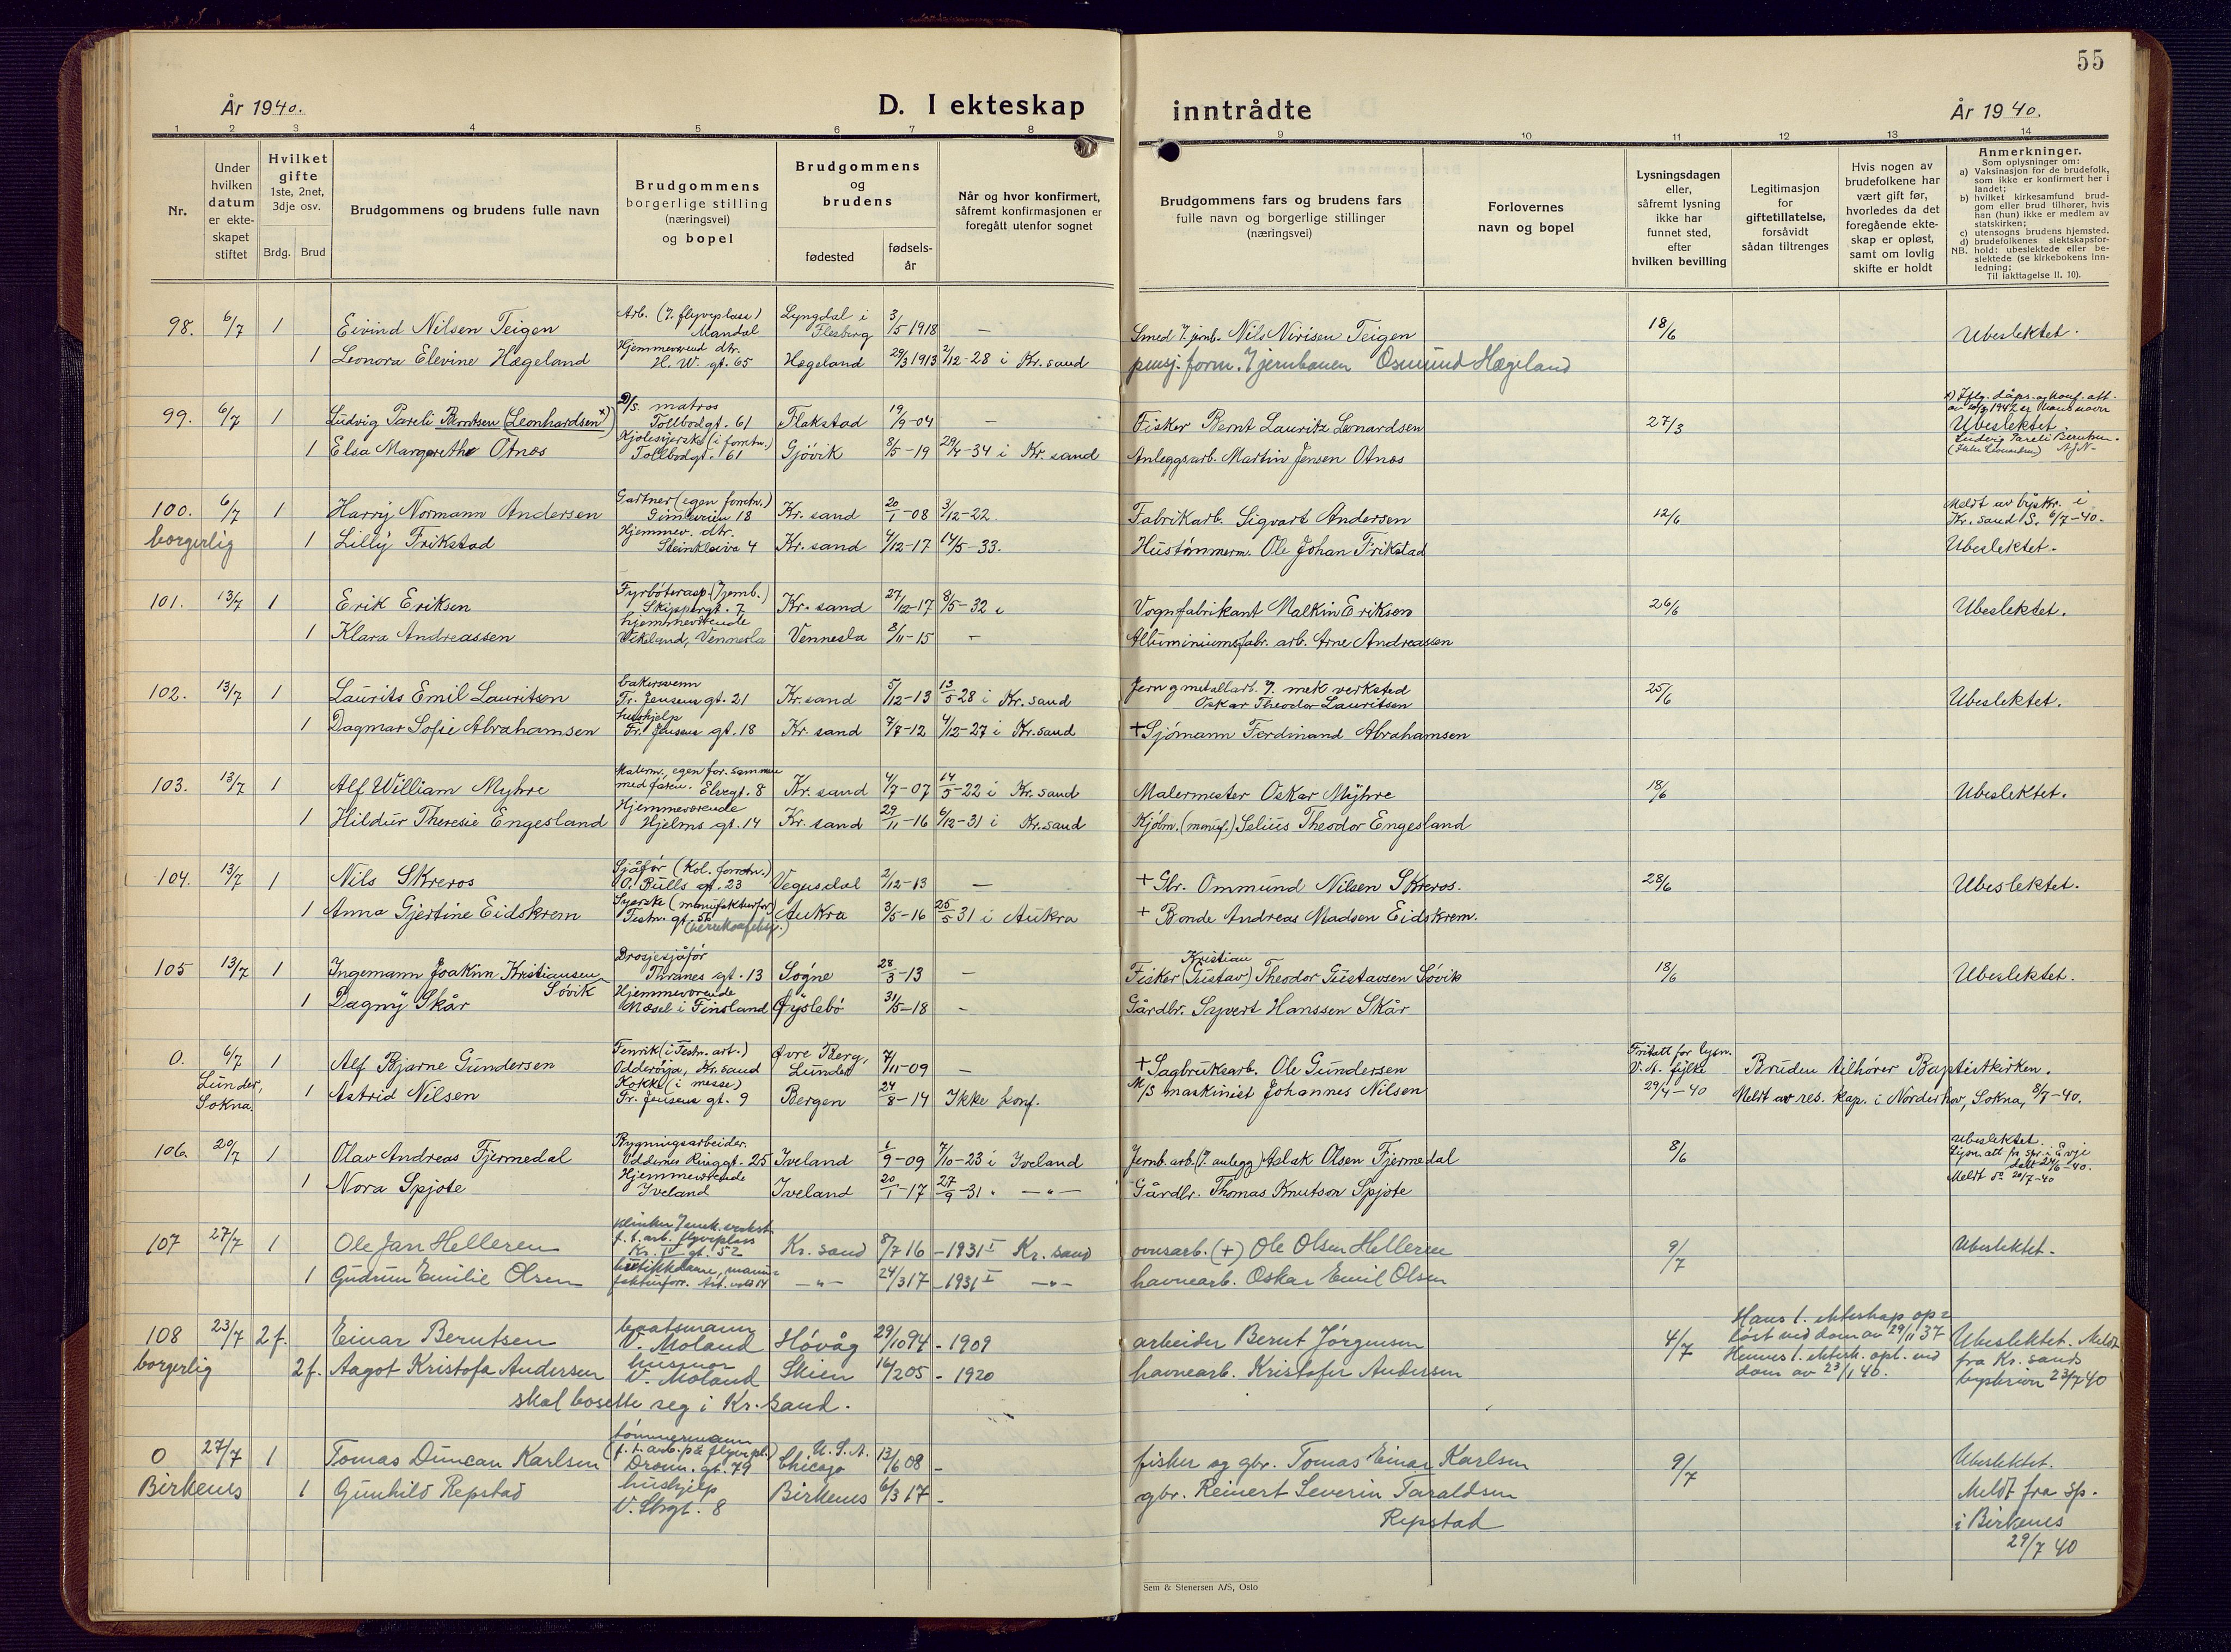 55
År 1940.
D. I ekteskap inntrådte
År 1940.
1 2 3 4 5 6 7 8 9 10 11 12 13 14
Nr.
Under hvilken datum er ekteskapet stiftet
Hvilket gifte 1ste, 2net, 3dje osv.
Brdg. Brud
Brudgommens og brudens fulle navn
Brudgommens borgerlige stilling (næringsvei) og bopel
Brudgommens og brudens
fødested
fødselsår
Når og hvor konfirmert, såfremt konfirmasjonen er foregått utenfor sognet
Brudgommens fars og brudens fars fulle navn og borgerlige stillinger (næringsvei)
Forlovernes navn og bopel
Lysningsdagen eller, såfremt lysning ikke har funnet sted, efter hvilken bevilling
Legitimasjon for giftetillatelse, forsåvidt sådan tiltrenges
Hvis nogen av brudefolkene har vært gift før, hvorledes da det foregående ekteskap er opløst, samt om lovlig skifte er holdt
Anmerkninger.
Som oplysninger om:
a) Vaksinasjon for de brudefolk, som ikke er konfirmert her i landet;
b) hvilket kirkesamfund brudgom eller brud tilhører, hvis han (hun) ikke er medlem av statskirken;
c) utensogns brudens hjemsted.
d) brudefolkenes slektskapsforhold: ubeslektede eller beslektede (se kirkebokens innledning;
NB.
Til iakttagelse II. 10).
98. 6/7 1 Eivind Nilsen Teigen Arb. (J. flyveplass) Mandal Lyngdal i Flesberg 3/5 1918 — Smed J. jernb. Nils Nirisen Teigen 18/6 Ubeslektet.
1 Leonora Elevine Hægeland Hjemmevrend dtr. H. W. gt. 65 Hægeland 29/3 1913 2/12-28 i Kr. sand pensj. form. Jernbanen Osmund Hægeland
99. 6/7 1 Ludvig Pareli Berntsen (Leonhardsen x) D/S. matros Tollbodgt. 61 Flakstad 19/9-04 — Fisker Bernt Lauritz Leonardsen 27/3 Ubeslektet.
1 Elsa Margarethe Otnes Kjolesyerske (i forretn.) Tollbodgt. 61 Gjövik 8/5-19 29/4-34 i Kr. sand Anleggsarb. Martin Jensen Otnes
100. 6/7 1 Harry Normann Andersen Gartner (egen forretn.) Gimleveien 18 Kr. sand 20/1-08 3/12-22. Fabrikarb. Sigvart Andersen 12/6 Meldt av byskr. i Kr. sand S. 6/7-40.
borgerlig 1 Lilly Frikstad Hjemmev. dtr. Steinkleiva 4 Kr. sand 4/12-17 14/5-33. Hustömmerm. Ole Johan Frikstad Ubeslektet.
101. 13/7 1 Erik Eriksen Fyrböterasp. (Jernb.) Skippergt. 7 Kr. sand 27/12-17 8/5-32 i Vognfabrikant Malkin Eriksen 26/6 Ubeslektet.
1 Klara Andreassen hjemmeværende Vikeland, Vennesla Vennesla 8/11-15 — Alluminiumsfabr. arb. Arne Andreassen
102. 13/7 1 Laurits Emil Lauritsen bakersvenn Fr. Jensens gt. 21 Kr. sand 5/12-13 13/5-28 i Kr. sand Jern og metallarb. J. mek verksted Oskar Theodor Lauritsen 25/6 Ubeslektet.
1 Dagmar Sofie Abrahamsen hushjelp Fr. Jensens gt. 18 Kr. sand 7/7-12 4/12-27 i Kr. sand + Sjömann Ferdinand Abrahamsen
103. 13/7 1 Alf William Myhre Malerm., egen for. sammen med faren. Elvegt. 8 Kr. sand 4/7-07 14/5-22 i Kr. sand Malermester Oskar Myhre 18/6 Ubeslektet.
1 Hildur Theresie Engesland Hjemmeværende Hjelms gt. 14 Kr. sand 29/11-16 6/12-31 i Kr. sand Kjölm. (manuf.) Selius Theodor Engesland
104. 13/7 1 Nils Skreros Sjåfør (Kol. forretn.) O. Bulls gt. 23 Vegusdal 2/12-13 — + Gbr. Ommund Nilsen Skreros. 28/6 Ubeslektet.
1 Anna Gjertine Eidskrem Syerske (manufakturfor.) Festn. gt. 56 Aukra 3/5-16 25/5-31 i Aukra + Bonde Andreas Madsen Eidskrem.
105 13/7 1 Ingemann Joakim Kristiansen Sövik Drosjesjåför Thranes gt. 13 Sogne 28/3-13 — Fisker Kristian (Gustav) Theodor Gustavsen Sövik 18/6 Ubeslektet.
1 Dagny Skår Hjemmeværende Mæsel i Finsland Öyslebö 31/5-18 - Gårdbr. Syvert Hanssen Skår
0. 6/7 1 Alf Bjarne Gundersen Fenrik (i Festn. art.) Odderöya, Kr. sand Øvre Berg, Lunder 7/11-09 — + Sagbruksarb. Ole Gundersen Fritatt for lysn. V. A. fylke 29/4-40 Bruden tilhører Baptistkirken.
Lunder, Sokna. 1 Astrid Nilsen Kokke (i messe) Fr. Jensens gt. 9 Bergen 24/8-14 Ikke konf. M/S maskinist Johannes Nilsen Meldt av res. kap. i Norderhov, Sokna, 8/7-40.
106. 20/7 1 Olav Andreas Fjermedal Bygningsarbeider. Oddernes Ringgt. 25 Iveland 1/9-09 7/10-23 i Iveland Jernb. arb. (J. anlegg) Aslak Olsen Fjermedal 8/6 Ubeslektet. Lysn. att fra spr. i Evje datt 24/6-40.
1 Nora Spjote Hjemmeværende Iveland Iveland 20/1-17 27/9-31 — " — Gårdbr. Thomas Knutson Spjote Meldt 20/7-40
107 27/7 1 Ole Jan Helleren plinker J mek. verkst f. t. arb. flyveplass Kr. IV gt. 52 Kr. sand 8/7 16 - 1931 I Kr. sand ovnsarb. (+) Ole Olsen Helleren 9/7 Ubeslektet.
1 Gudrun Emilie Olsen butikkdame, manufakturforr. Art. vold 14 — " — 24/3 17 - 1931 I — " — havnearb. Oskar Emil Olsen
108 23/7 2 f. Einar Berntsen baatsmann V. Moland Hövåg 29/10 94 - 1909 arbeider Bernt Jörgensen 4/7 Hans 1. ekteskap oplöst ved dom av 29/11 37 Ubeslektet. Meldt
borgerlig 2 f. Aagot Kristofa Andersen husmor V. Moland Skien 16/2 05 - 1920 havnearb. Kristofer Andersen Hennes 1. ektesk. opl. ved dom av 23/1 40. fra Kr. sands byskriver 23/7 40
skal bosette seg i Kr. sand.
0 27/7 1 Tomas Duncan Karlsen tömmermann (f. t. arb. på flyvepl.) Dronn. gt. 79 U. S. A. Chicago 13/6 08 - fisker og gbr. Tomas Einar Karlsen 9/7 Ubeslektet.
Birkenes 1 Gunhild Repstad hushjelp V. Strgt. 8 Birkenes 6/3 17 - gbr. Reinert Severin Taraldsen Repstad Meldt fra sp. i Birkenes 29/7 40
Sem & Stenersen A/S, Oslo